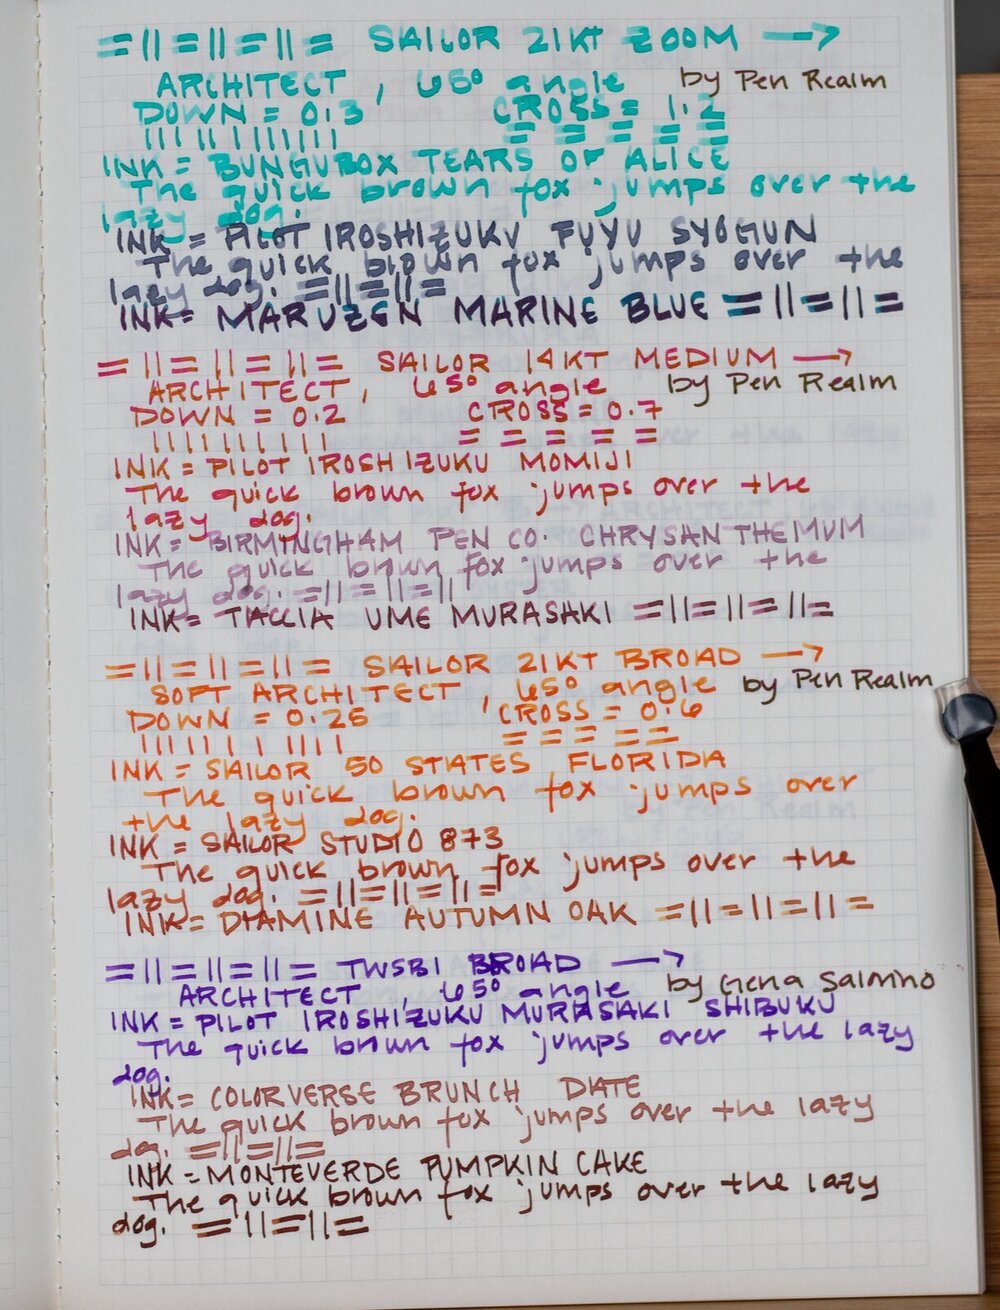 =||=||=||= SAILOR 21KT ZOOM →
ARCHITECT, 65° angle by Pen Realm
DOWN = 0.3 CROSS = 1.2
||||||||||||| = = = = =
INK = BUNGUBOX TEARS OF ALICE
The quick brown fox jumps over the
lazy dog.
INK = PILOT IROSHIZUKU FUYU SYOGUN
The quick brown fox jumps over the
lazy dog. =||=||=
INK = MARUZEN MARINE BLUE =||=||=
=||=||=||= SAILOR 14KT MEDIUM →
ARCHITECT, 65° angle by Pen Realm
DOWN = 0.2 CROSS = 0.7
||||||||||| = = = = =
INK = PILOT IROSHIZUKU MOMIJI
The quick brown fox jumps over the
lazy dog.
INK = BIRMINGHAM PEN CO. CHRYSANTHEMUM
The quick brown fox jumps over the
lazy dog. =||=||=||
INK = TACCIA UME MURASAKI =||=||=||=
=||=||=||= SAILOR 21KT BROAD →
SOFT ARCHITECT, 65° angle by Pen Realm
DOWN = 0.25 CROSS = 0.6
|||||||||||| = = = = =
INK = SAILOR 50 STATES FLORIDA
The quick brown fox jumps over
the lazy dog.
INK = SAILOR STUDIO 873
The quick brown fox jumps over the
lazy dog. =||=||=||=
INK = DIAMINE AUTUMN OAK =||=||=||=
=||=||=||= TWSBI BROAD →
ARCHITECT, 65° angle by Gena Salorino
INK = PILOT IROSHIZUKU MURASAKI SHIBUKU
The quick brown fox jumps over the lazy
dog.
INK = COLORVERSE BRUNCH DATE
The quick brown fox jumps over the lazy
dog. =||=||=
INK = MONTEVERDE PUMPKIN CAKE
The quick brown fox jumps over the lazy
dog. =||=||=